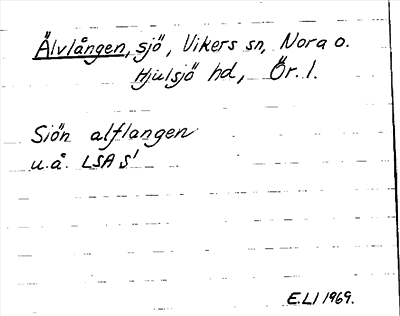 Älvlången, sjö, Vikers sn, Nora o.
Hjulsjö hd, Ör. l.
Siön alflangen
u.å. LSA S1
E.LI 1969.